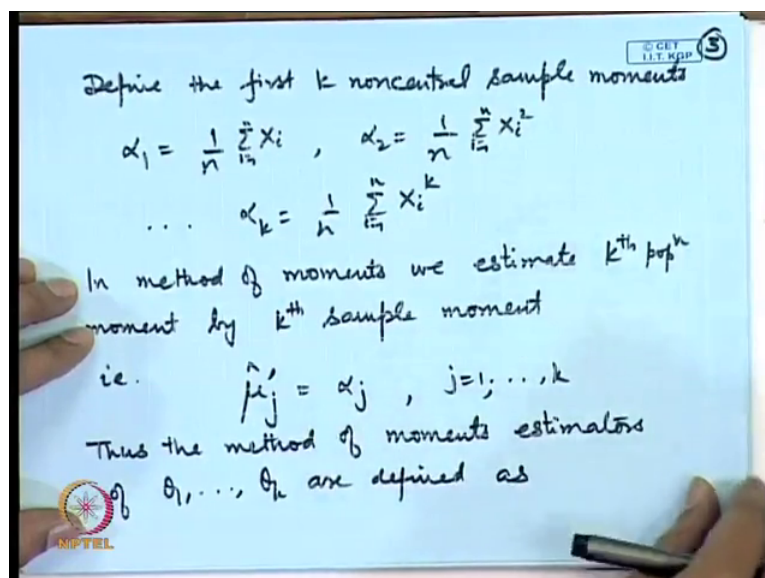 © CET
I.I.T. KGP
3
Define the first k noncentral sample moments
α₁ = 1/n Σᵢ₌₁ⁿ Xᵢ , α₂ = 1/n Σᵢ₌₁ⁿ Xᵢ²
... αₖ = 1/n Σᵢ₌₁ⁿ Xᵢᵏ
In method of moments we estimate kᵗʰ popⁿ
moment by kᵗʰ sample moment
ie. μ̂'ⱼ = αⱼ , j=1, ..., k
Thus the method of moments estimators
of θ₁, ..., θₖ are defined as
NPTEL